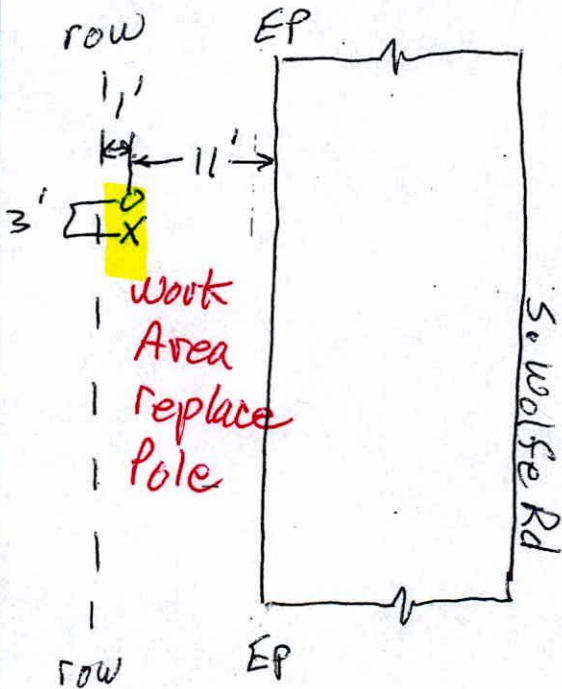 row EP
1'
11'
3'
O
X
Work
Area
replace
Pole
So Wolfe Rd
row EP